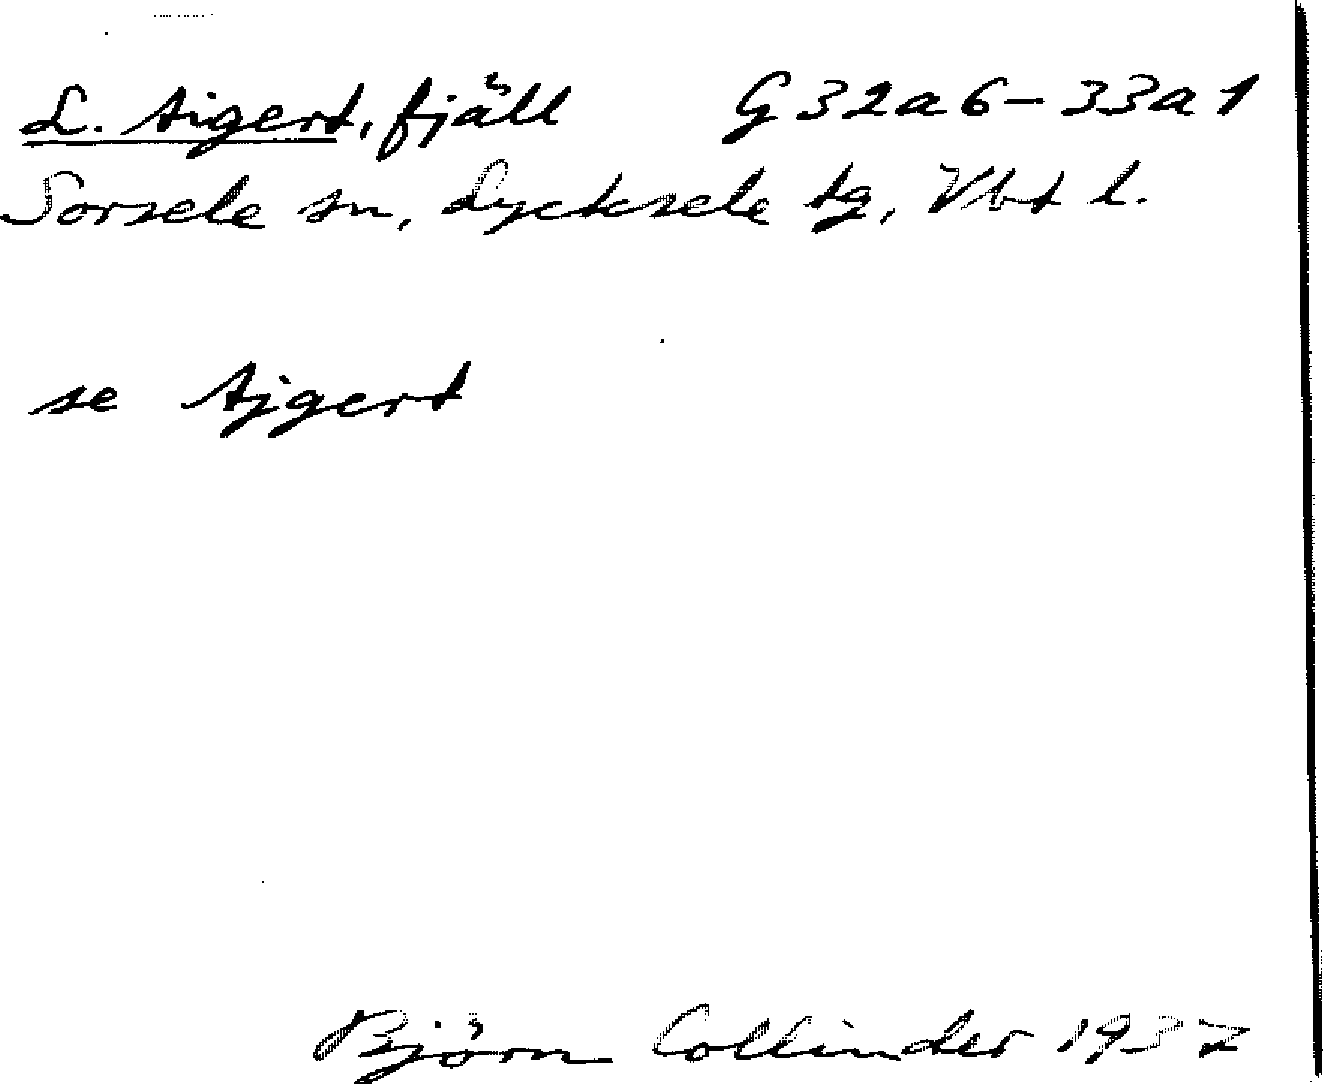 L. Aigert, fjäll G32a6-33a1
Sorsele sn, Lycksele tg, Vbt l.
se Ajgert
Björn Collinder 1937